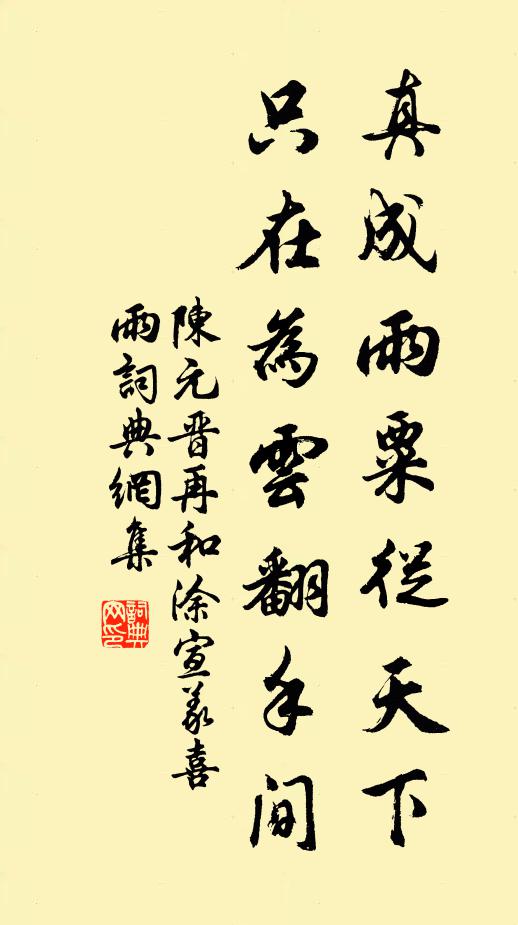 真成雨粟從天下
只在為雲翻手間
陳元晋再和涂宣義喜
雨詞典網集
詞典
网印